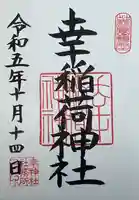 幸稲荷神社
令和五年十月十四日